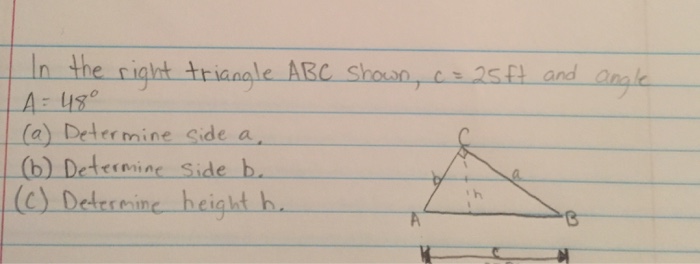 In the right triangle ABC shown, c = 25ft and angle
A = 48°
(a) Determine side a.
(b) Determine side b.
(C) Determine height h.
C
b
a
h
A
B
c